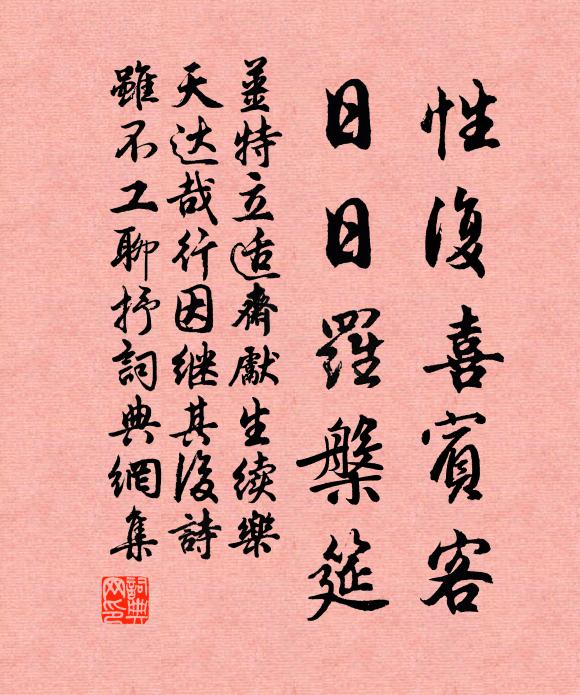 性復喜賓客
日日羅槃筵
姜特立适齋獻生续樂
天达哉行因继其後詩
雖不工聊抒詞典網集
詞典網印